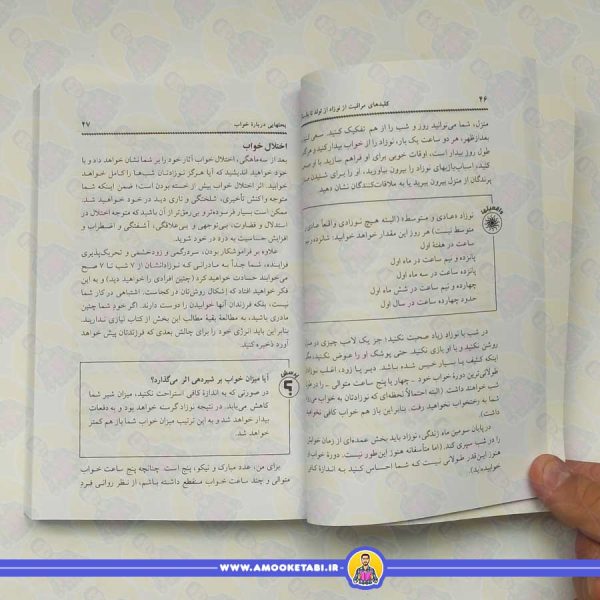 ۴۶
کلیدهای مراقبت از نوزاد از تولد تا یک
منزل، شما می‌توانید روز و شب را از هم تفکیک کنید. سعی کنید
بعدازظهر، هر دو ساعت یک بار، نوزاد را از خواب بیدار کنید و هرگاه
طول روز بیدار است، اوقات خوبی برای او فراهم سازید. با او صحبت
کنید، اسباب‌بازیهای نوزاد را بیرون بیاورید، او را برای شنیدن
پرندگان از منزل بیرون ببرید یا به ملاقات‌کنندگان نشان دهید.
نوزاد «عادی و متوسط» (البته هیچ نوزادی واقعاً عادی و
متوسط نیست) هر روز این مقدار خواهد خوابید: شانزده و نیم
ساعت در هفتۀ اول
پانزده و نیم ساعت در ماه اول
پانزده ساعت در سه ماه اول
چهارده و نیم ساعت در شش ماه اول
حدود چهارده ساعت در سال اول
در شب با نوزاد زیاد صحبت نکنید؛ جز یک لامپ چیزی
روشن نکنید و با او بازی نکنید. حتی پوشک او را عوض نکنید،
اینکه کثیف یا بسیار خیس شده باشد. دیر یا زود، اغلب نوزادان
طولانی‌ترین دورۀ خواب خود ـ چهار یا پنج ساعت متوالی ـ را در طول
شب خواهند داشت. (البته احتمالاً لحظه‌ای که نوزادتان به خواب می‌رود
شما به رختخواب نخواهید رفت. بنابر این باز هم خواب کافی نخواهید
داشت).
در پایان سومین ماه زندگی، نوزاد باید بخش عمده‌ای از زمان خواب
را در شب سپری کند. (اما متأسفانه هنوز این‌طور نیست. دورۀ خواب
هنوز این‌قدر طولانی نیست که شما احساس کنید به اندازۀ کافی
خوابیده‌اید).
بحثهایی دربارۀ خواب
۴۷
اختلال خواب
بعد از سه‌ماهگی، اختلال خواب آثار خود را بر شما نشان خواهد داد و با
خود خواهید اندیشید که آیا هرگز نوزادتان شب‌ها را کامل خواهد
خوابید. اثر اختلال خواب بیش از خسته بودن است؛ ضمن اینکه شما
متوجه واکنش تأخیری، شلختگی و تاری دید در خود خواهید شد.
ممکن است بسیار فرسوده‌تر و بی‌رمق‌تر از آن باشید که متوجه اختلال در
استدلال و قضاوت، بی‌توجهی و بی‌علاقگی، آشفتگی و اضطراب و
افزایش حساسیت به درد در خود شوید.
علاوه بر فراموشکار بودن، سردرگمی و زودخشمی و تحریک‌پذیری
فزاینده، شما جداً به مادرانی که نوزادانشان از ۷ شب تا ۷ صبح
می‌خوابند حسادت خواهید کرد (چنین افرادی را خواهید دید) و به این
فکر خواهید افتاد که اشکال روش‌تان در کجاست. اشتباهی در کار شما
نیست، بلکه فرزندان آنها خوابیدن را دوست دارند. اگر خود شما چنین
مادری باشید، به مطالعۀ بقیۀ مطالب این بخش از کتاب نیازی ندارید.
بنابر این باید انرژی خود را برای چالش بعدی که فرزندتان پیش خواهد
آورد ذخیره کنید.
پرسش
آیا میزان خواب بر شیردهی اثر می‌گذارد؟
در صورتی که به اندازۀ کافی استراحت نکنید، میزان شیر شما
کاهش می‌یابد. در نتیجه نوزاد گرسنه خواهد بود و به دفعات
بیدار خواهد شد و به این ترتیب میزان خواب شما باز هم کمتر
خواهد شد.
برای من، عدد مبارک و نیکو، پنج است. چنانچه پنج ساعت خواب
متوالی و چند ساعت خواب منقطع داشته باشم، از نظر روانی فرد
WWW.AMOOKETABI.IR